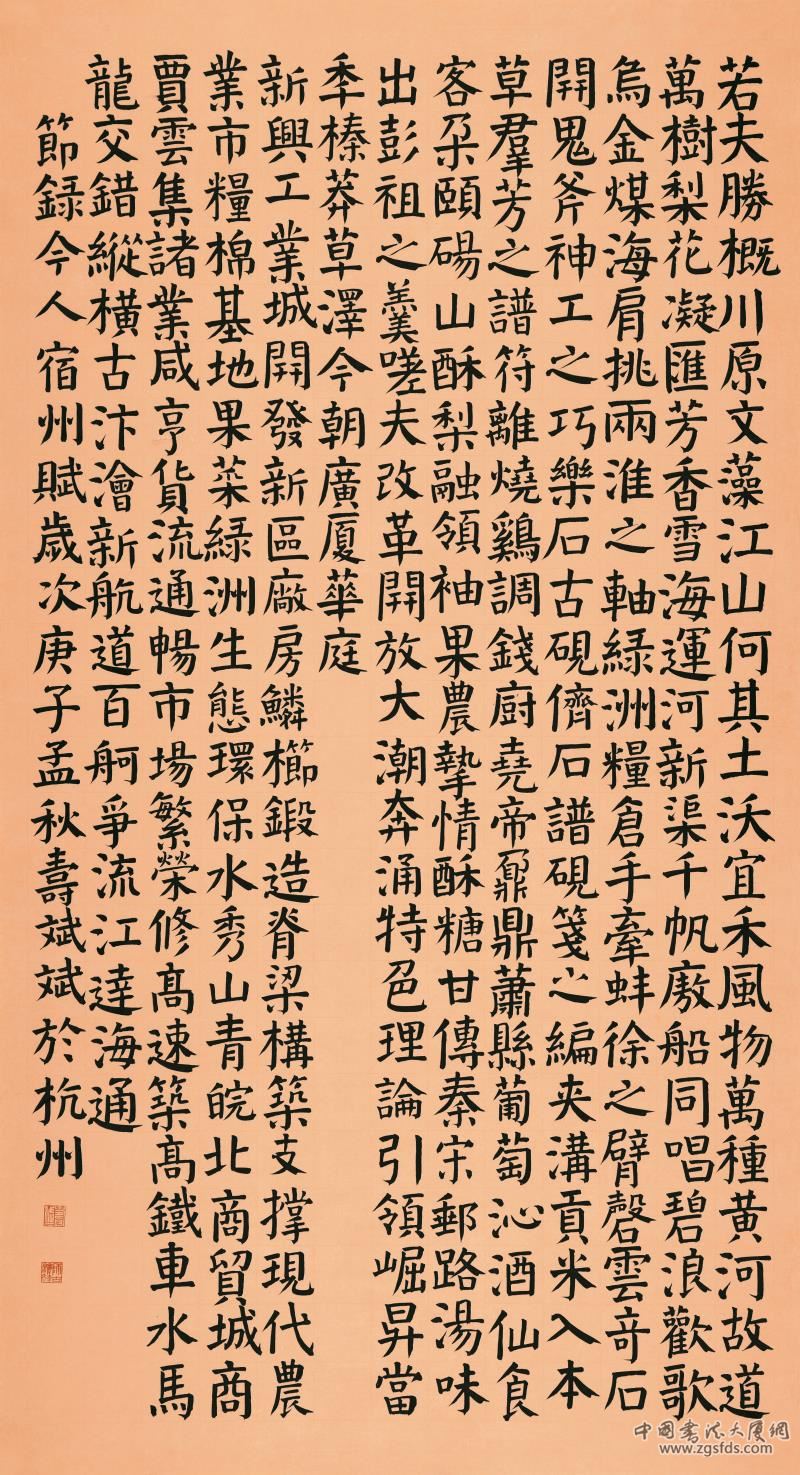 若夫勝概川原文藻江山何其土沃宜禾風物萬種黃河故道
萬樹梨花凝匯芳香雪海運河新渠千帆廒船同唱碧浪歡歌
烏金煤海肩挑兩淮之軸綠洲糧倉手牽蚌徐之臂磬雲奇石
開鬼斧神工之巧樂石古硯儕石譜硯箋之編夾溝貢米入本
草羣芳之譜符離燒鷄調錢廚堯帝鼐鼎蕭縣葡萄沁酒仙食
客朶頤碭山酥梨融領袖果農摯情酥糖甘傳秦宋郵路湯味
出彭祖之羹嗟夫改革開放大潮奔涌特色理論引領崛昇當
季榛莽草澤今朝廣厦華庭
新興工業城開發新區廠房鱗櫛鍛造脊梁構築支撑現代農
業市糧棉基地果菜綠洲生態環保水秀山青皖北商貿城商
賈雲集諸業咸亨貨流通暢市場繁榮修高速築高鐵車水馬
龍交錯縱橫古汴澮新航道百舸爭流江達海通
節録今人宿州賦歲次庚子孟秋壽斌斌於杭州
中國書法大厦網
www.zgsfds.com